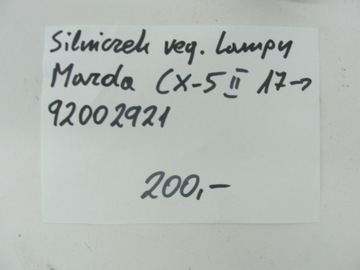 Silniczek reg. Lampy
Mazda CX-5 II 17->
92002921
200,-